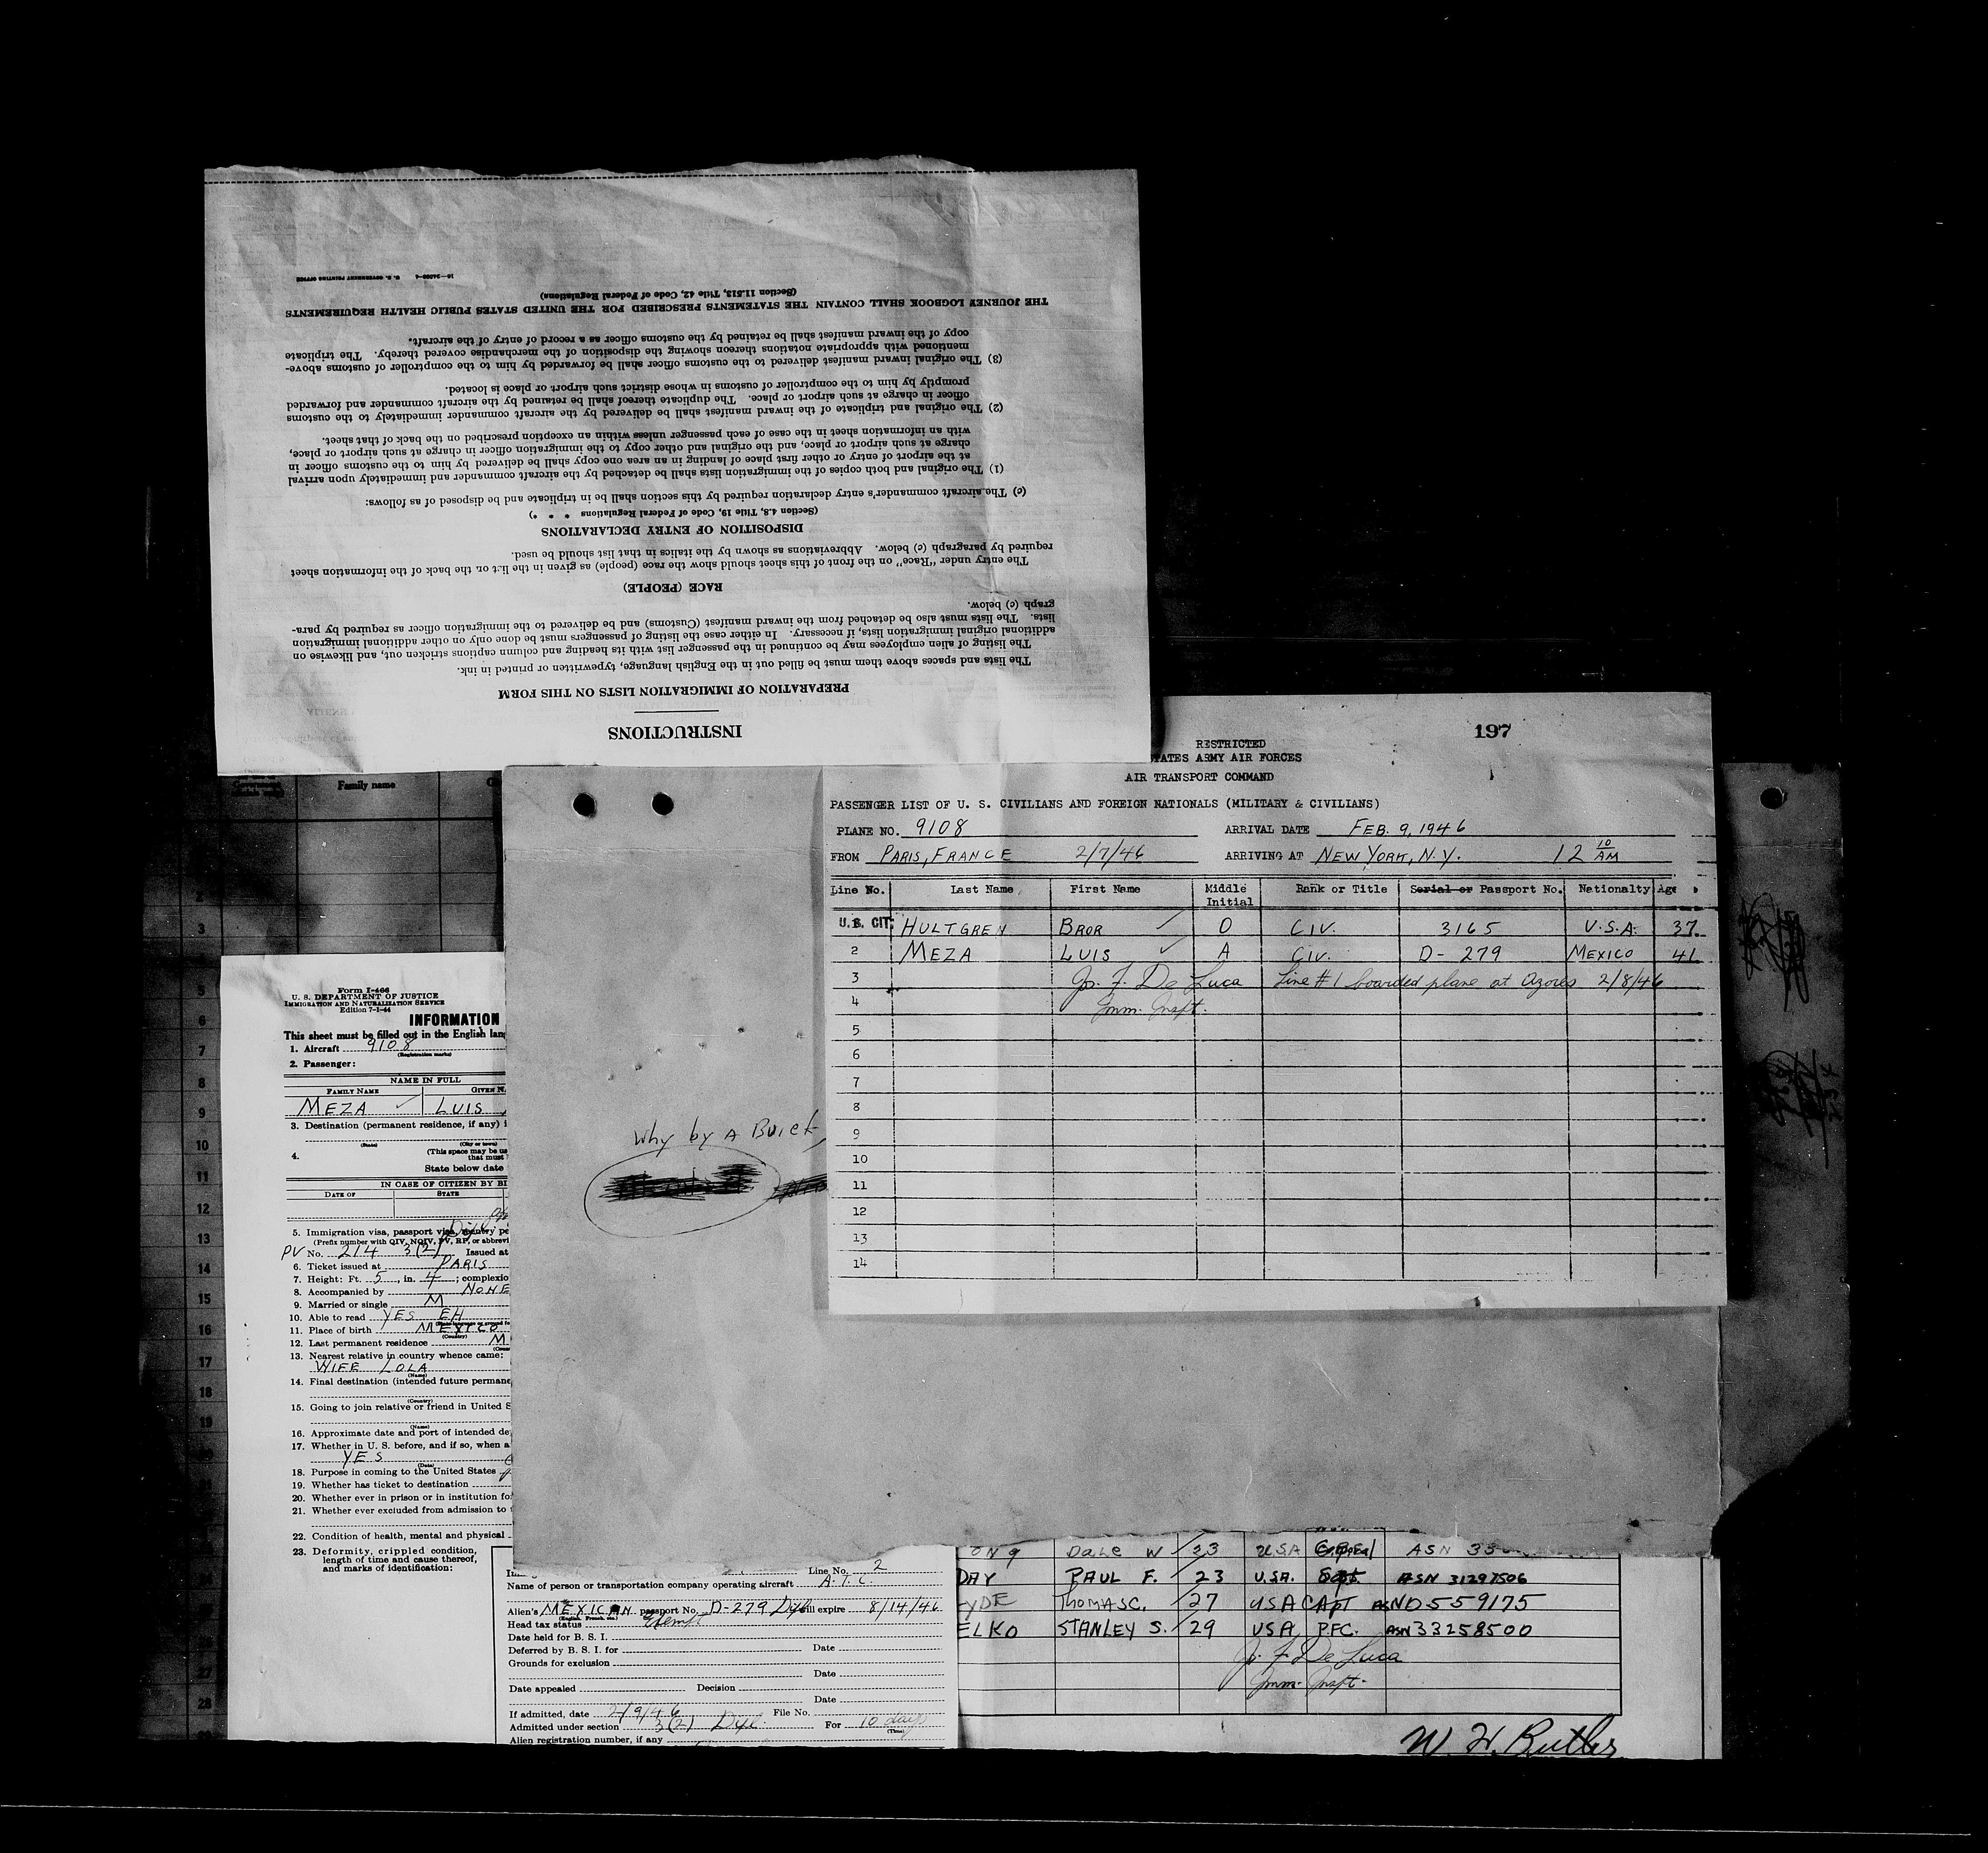 16—24996-4 U. S. GOVERNMENT PRINTING OFFICE
INSTRUCTIONS
PREPARATION OF IMMIGRATION LISTS ON THIS FORM
The lists and spaces above them must be filled out in the English language, typewritten or printed in ink.
The listing of alien employees may be continued in the passenger list with its heading and column captions stricken out, and likewise on
additional original immigration lists, if necessary. In either case the listing of passengers must be done only on other additional immigration
lists. The lists must also be detached from the inward manifest (Customs) and be delivered to the immigration officer as required by para-
graph (c) below.
RACE (PEOPLE)
The entry under "Race" on the front of this sheet should show the race (people) as given in the list on the back of the information sheet
required by paragraph (c) below. Abbreviations as shown by the italics in that list should be used.
DISPOSITION OF ENTRY DECLARATIONS
(Section 4.8, Title 19, Code of Federal Regulations * * *)
(c) The aircraft commander's entry declaration required by this section shall be in triplicate and be disposed of as follows:
(1) The original and both copies of the immigration lists shall be detached by the aircraft commander and immediately upon arrival
at the airport of entry or other first place of landing in an area one copy shall be delivered by him to the customs officer in
charge at such airport or place, and the original and other copy to the immigration officer in charge at such airport or place,
with an information sheet in the case of each passenger unless within an exception prescribed on the back of that sheet.
(2) The original and triplicate of the inward manifest shall be delivered by the aircraft commander immediately to the customs
officer in charge at such airport or place. The duplicate thereof shall be retained by the aircraft commander and forwarded
promptly by him to the comptroller of customs in whose district such airport or place is located.
(3) The original inward manifest delivered to the customs officer shall be forwarded by him to the comptroller of customs above-
mentioned with appropriate notations thereon showing the disposition of the merchandise covered thereby. The triplicate
copy of the inward manifest shall be retained by the customs officer as a record of entry of the aircraft.
THE JOURNEY LOGBOOK SHALL CONTAIN THE STATEMENTS PRESCRIBED FOR THE UNITED STATES PUBLIC HEALTH REQUIREMENTS
(Section 11.513, Title 42, Code of Federal Regulations)
197
RESTRICTED
TATES ARMY AIR FORCES
AIR TRANSPORT COMMAND
PASSENGER LIST OF U. S. CIVILIANS AND FOREIGN NATIONALS (MILITARY & CIVILIANS)
PLANE NO. 9108 ARRIVAL DATE FEB. 9, 1946
FROM PARIS, FRANCE 2/7/46 ARRIVING AT NEW YORK, N.Y. 12 10 AM
Line No. Last Name First Name Middle Initial Rank or Title Serial or Passport No. Nationalty Age
U.S. CIT. HULTGREN BROR O CIV. 3165 U.S.A. 37
2 MEZA LUIS A CIV. D-279 MEXICO 41
3 Jos. F. De Luca Line #1 boarded plane at Azores 2/8/46
4 Imm. Inspt.
5
6
7
8
9
10
11
12
13
14
Why by A Buick
Family name
2
3
5
6
7
8
9
10
11
12
13
14
15
16
17
18
19
27
28
Form I-466
U. S. DEPARTMENT OF JUSTICE
IMMIGRATION AND NATURALIZATION SERVICE
Edition 7-1-44
INFORMATION
This sheet must be filled out in the English lang
1. Aircraft 9108
(Registration marks)
2. Passenger:
NAME IN FULL
FAMILY NAME GIVEN N
MEZA LUIS
3. Destination (permanent residence, if any) i
(State) (City or town)
4. (This space may be us
that must
State below date
IN CASE OF CITIZEN BY BI
DATE OF STATE
5. Immigration visa, passport visa, reentry pe
(Prefix number with QIV, NQIV, PV, RP, or abbrevi
PV No. 214 3(2) Issued at
6. Ticket issued at PARIS
7. Height: Ft. 5, in. 4; complexio
8. Accompanied by NONE
9. Married or single M
10. Able to read YES EH
11. Place of birth MEXICO
(Country)
12. Last permanent residence M
13. Nearest relative in country whence came:
WIFE LOLA
(Name)
14. Final destination (intended future permane
(Country)
15. Going to join relative or friend in United S
(Name)
16. Approximate date and port of intended de
17. Whether in U. S. before, and if so, when a
YES
(Date)
18. Purpose in coming to the United States
19. Whether has ticket to destination
20. Whether ever in prison or in institution fo
21. Whether ever excluded from admission to
22. Condition of health, mental and physical
23. Deformity, crippled condition,
length of time and cause thereof,
and marks of identification:
Line No. 2
Name of person or transportation company operating aircraft A.T.C.
Alien's MEXICAN passport No. D-279 Dipl will expire 8/14/46
(English, French, etc.)
Head tax status Exempt
Date held for B. S. I.
Deferred by B. S. I. for Date
Grounds for exclusion
Date
Date appealed Decision
Date
If admitted, date 2/9/46 File No.
Admitted under section 3(2) Dipl. For 10 days
(Time)
Alien registration number, if any
ONG DALE W 23 USA ASN 33
DAY PAUL F. 23 U.S.A. Sgt. ASN 31297506
YDE THOMAS C. 27 USA CAPT ASN 0559175
ELKO STANLEY S. 29 USA PFC. ASN 33258500
Jos. F. De Luca
Imm. Inspt.
W. H. Butler